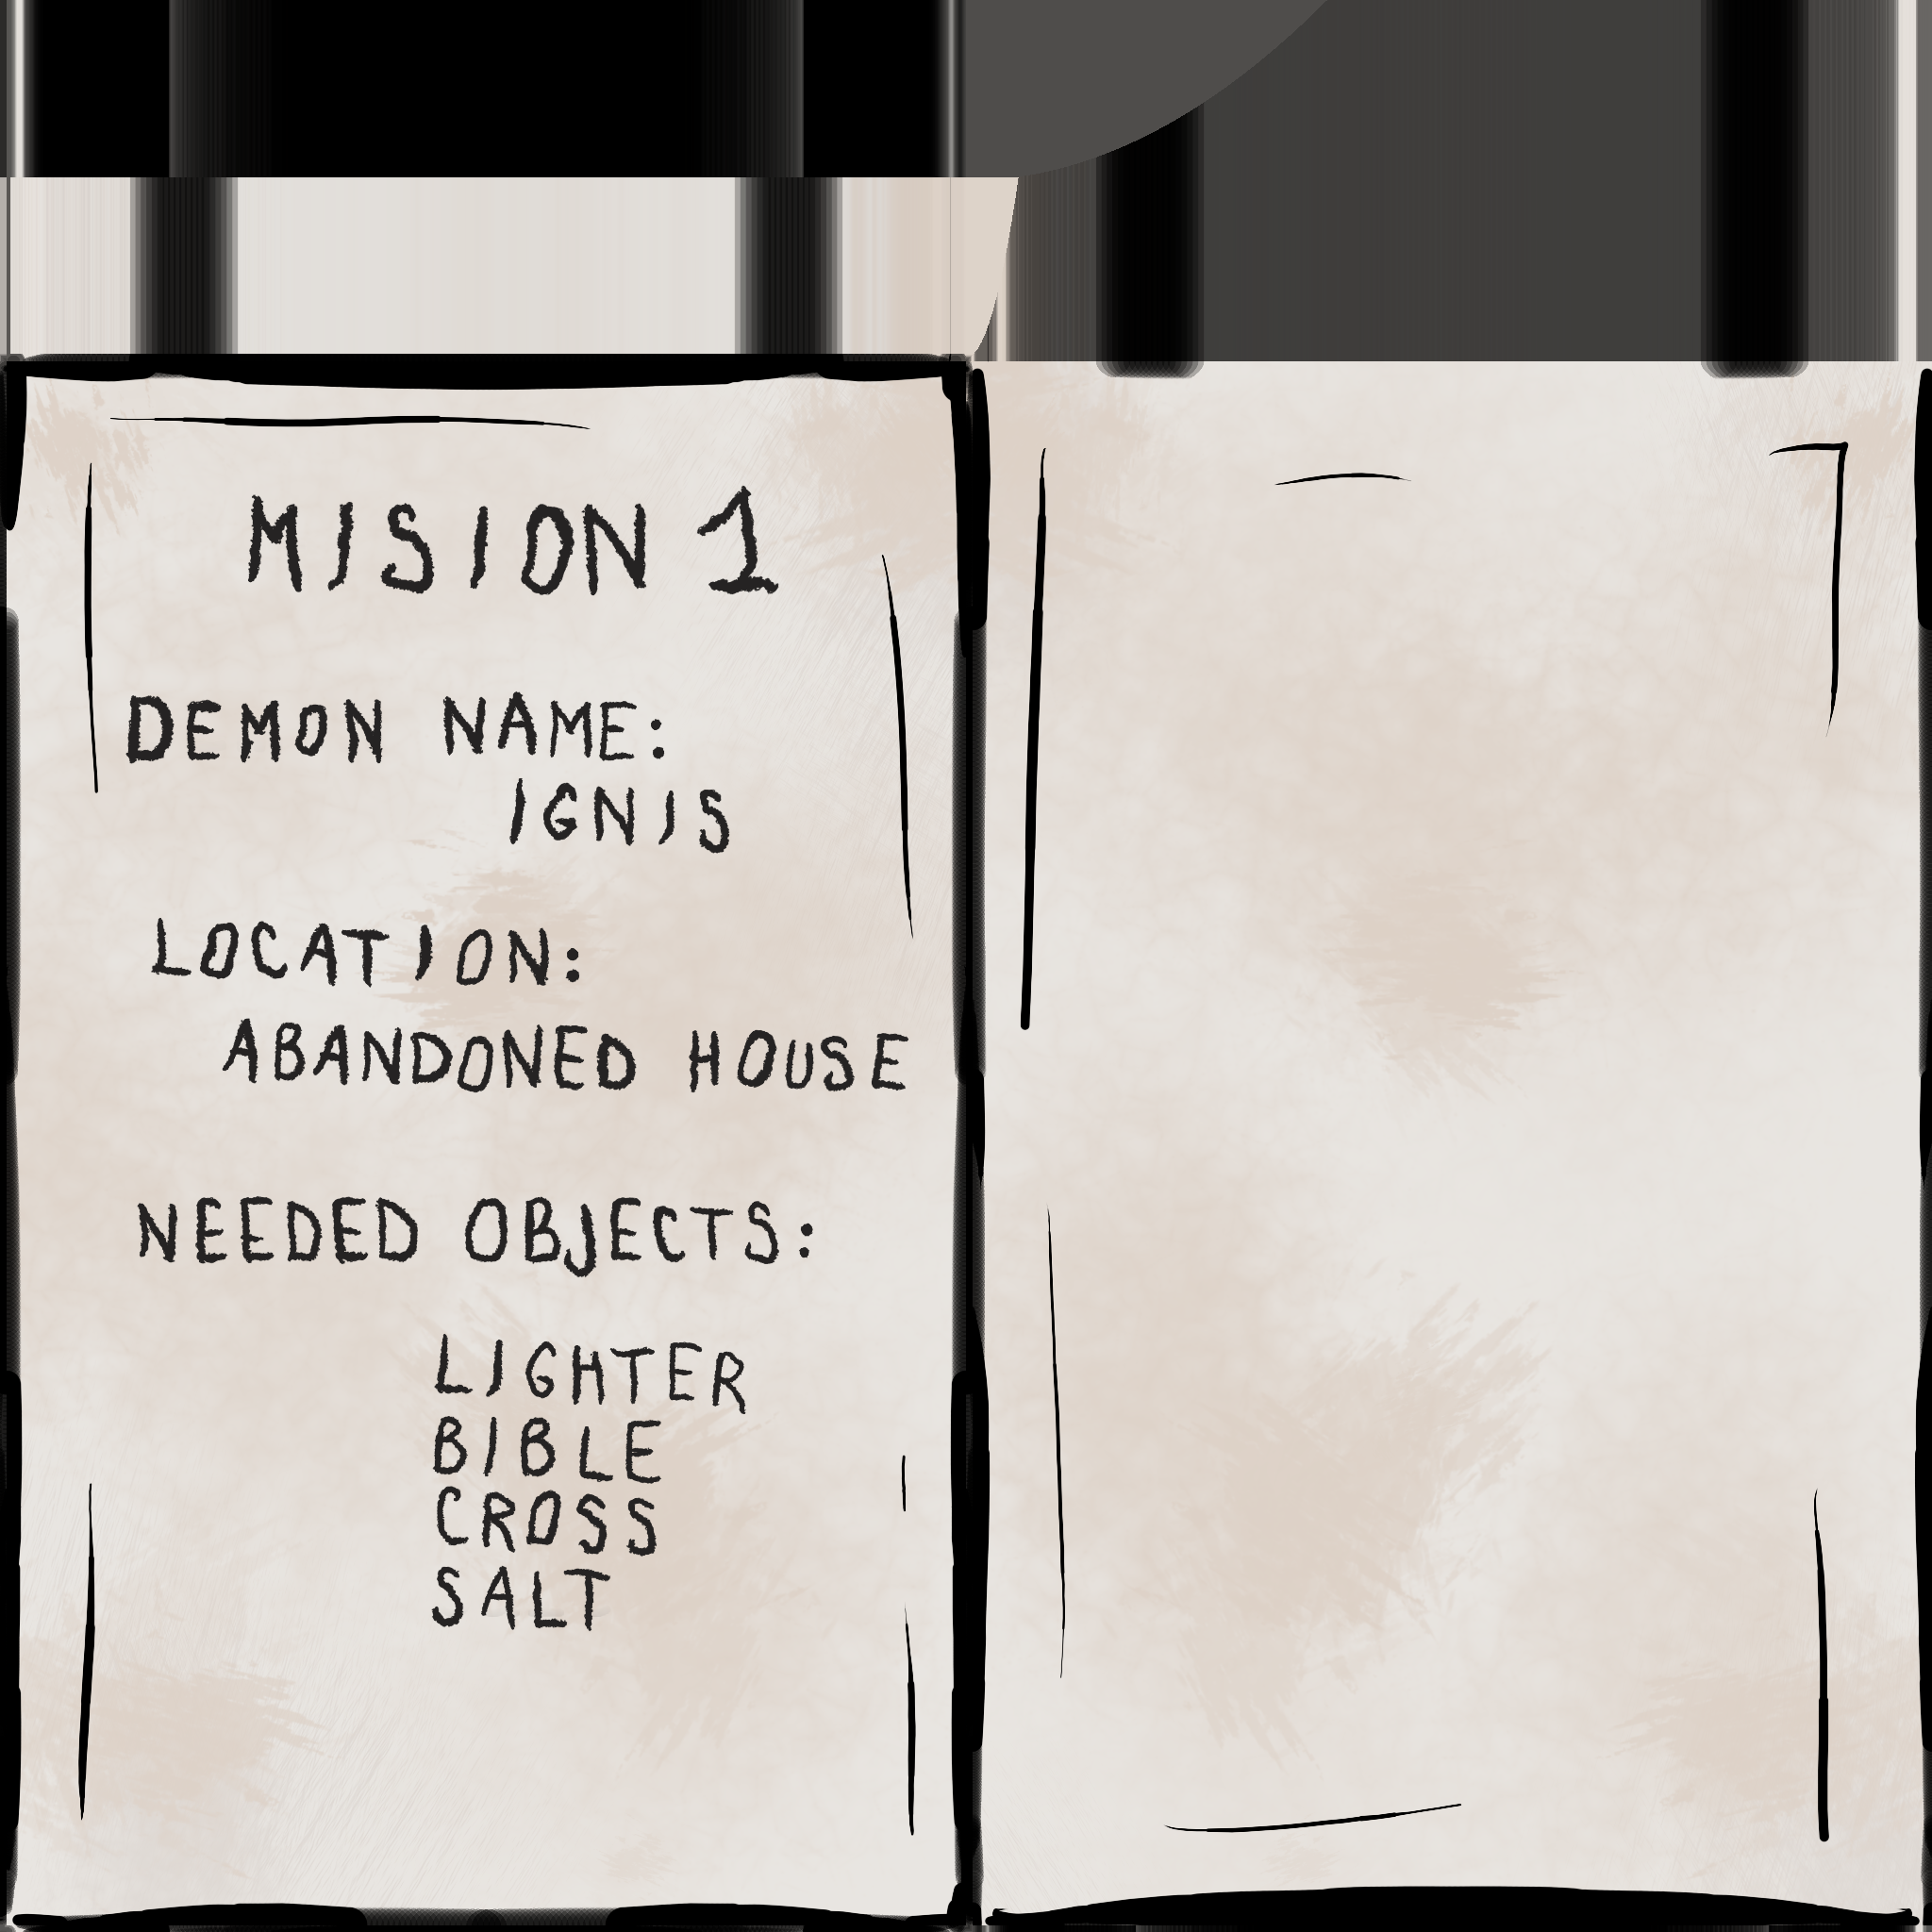 MISION 1
DEMON NAME:
IGNIS
LOCATION:
ABANDONED HOUSE
NEEDED OBJECTS:
LIGHTER
BIBLE
CROSS
SALT